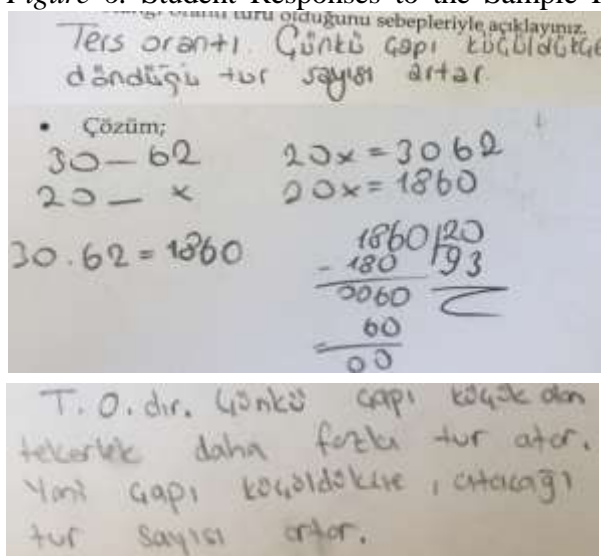 Figure 6. Student Responses to the Sample
oranti türü olduğunu sebepleriyle açıklayınız.
Ters orantı. Çünkü çapı küçüldükçe
döndüğü tur sayısı artar.
• Çözüm;
30 — 62
20 — x
20x = 30 62
20x = 1860
30 . 62 = 1860
1860 | 20
- 180 | 93
0060
60
00
T. O. dır. Çünkü çapı küçük olan
tekerlek daha fazla tur atar.
Yani çapı küçüldükçe, atacağı
tur sayısı artar.